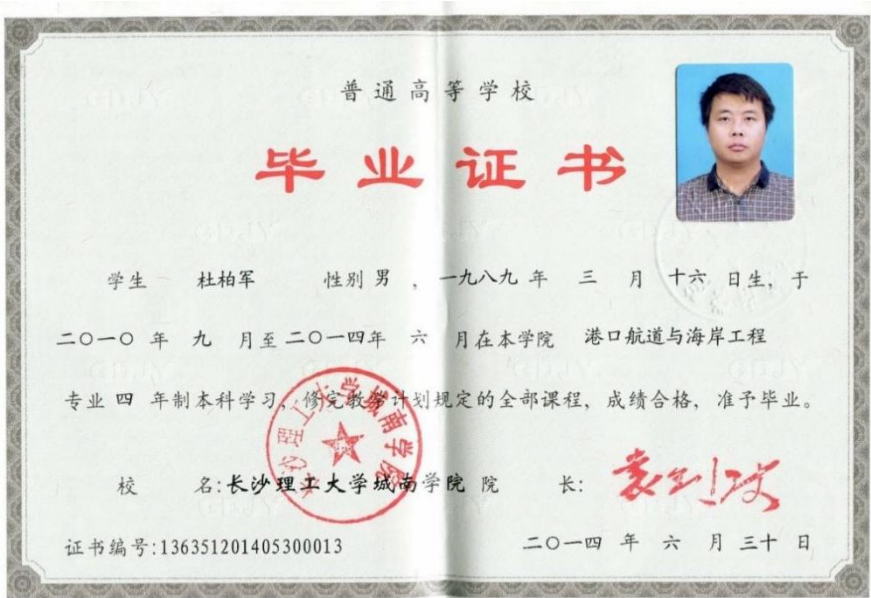 普通高等学校
毕业证书
学生 杜柏军 性别 男 ，一九八九 年 三 月 十六 日生，于
二〇一〇 年 九 月至二〇一四年 六 月在本学院 港口航道与海岸工程
专业 四 年制本科学习，修完教学计划规定的全部课程，成绩合格，准予毕业。
校 名：长沙理工大学城南学院 院 长：
长沙理工大学城南学院
证书编号：136351201405300013
二〇一四 年 六 月 三十 日